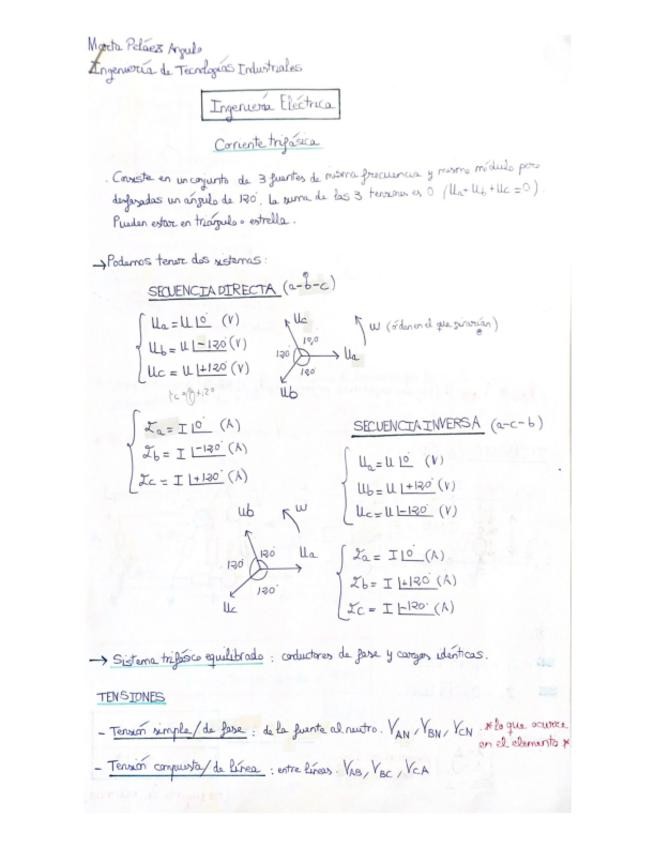 Marta Peláez Angulo
Ingeniería de Tecnologías Industriales
Ingeniería Eléctrica
Corriente trifásica
. Consiste en un conjunto de 3 fuentes de misma frecuencia y mismo módulo pero
desfasadas un ángulo de 120°. La suma de las 3 tensiones es 0 (Ua+Ub+Uc=0).
Pueden estar en triángulo o estrella.
→ Podemos tener dos sistemas:
SECUENCIA DIRECTA (a-b-c)
Ua = U∟0° (V)
Ub = U∟-120° (V)
Uc = U∟+120° (V)
Uc
120
120°
120°
Ua
Ub
W (orden en el que girarían)
Ia = I∟0° (A)
Ib = I∟-120° (A)
Ic = I∟+120° (A)
SECUENCIA INVERSA (a-c-b)
Ua = U∟0° (V)
Ub = U∟+120° (V)
Uc = U∟-120° (V)
Ub
W
120°
120°
120°
Ua
Uc
Ia = I∟0° (A)
Ib = I∟+120° (A)
Ic = I∟-120° (A)
→ Sistema trifásico equilibrado : conductores de fase y cargas idénticas.
TENSIONES
- Tensión simple/de fase : de la fuente al neutro. VAN, VBN, VCN * lo que ocurre
en el elemento *
- Tensión compuesta/de línea : entre líneas. VAB, VBC, VCA